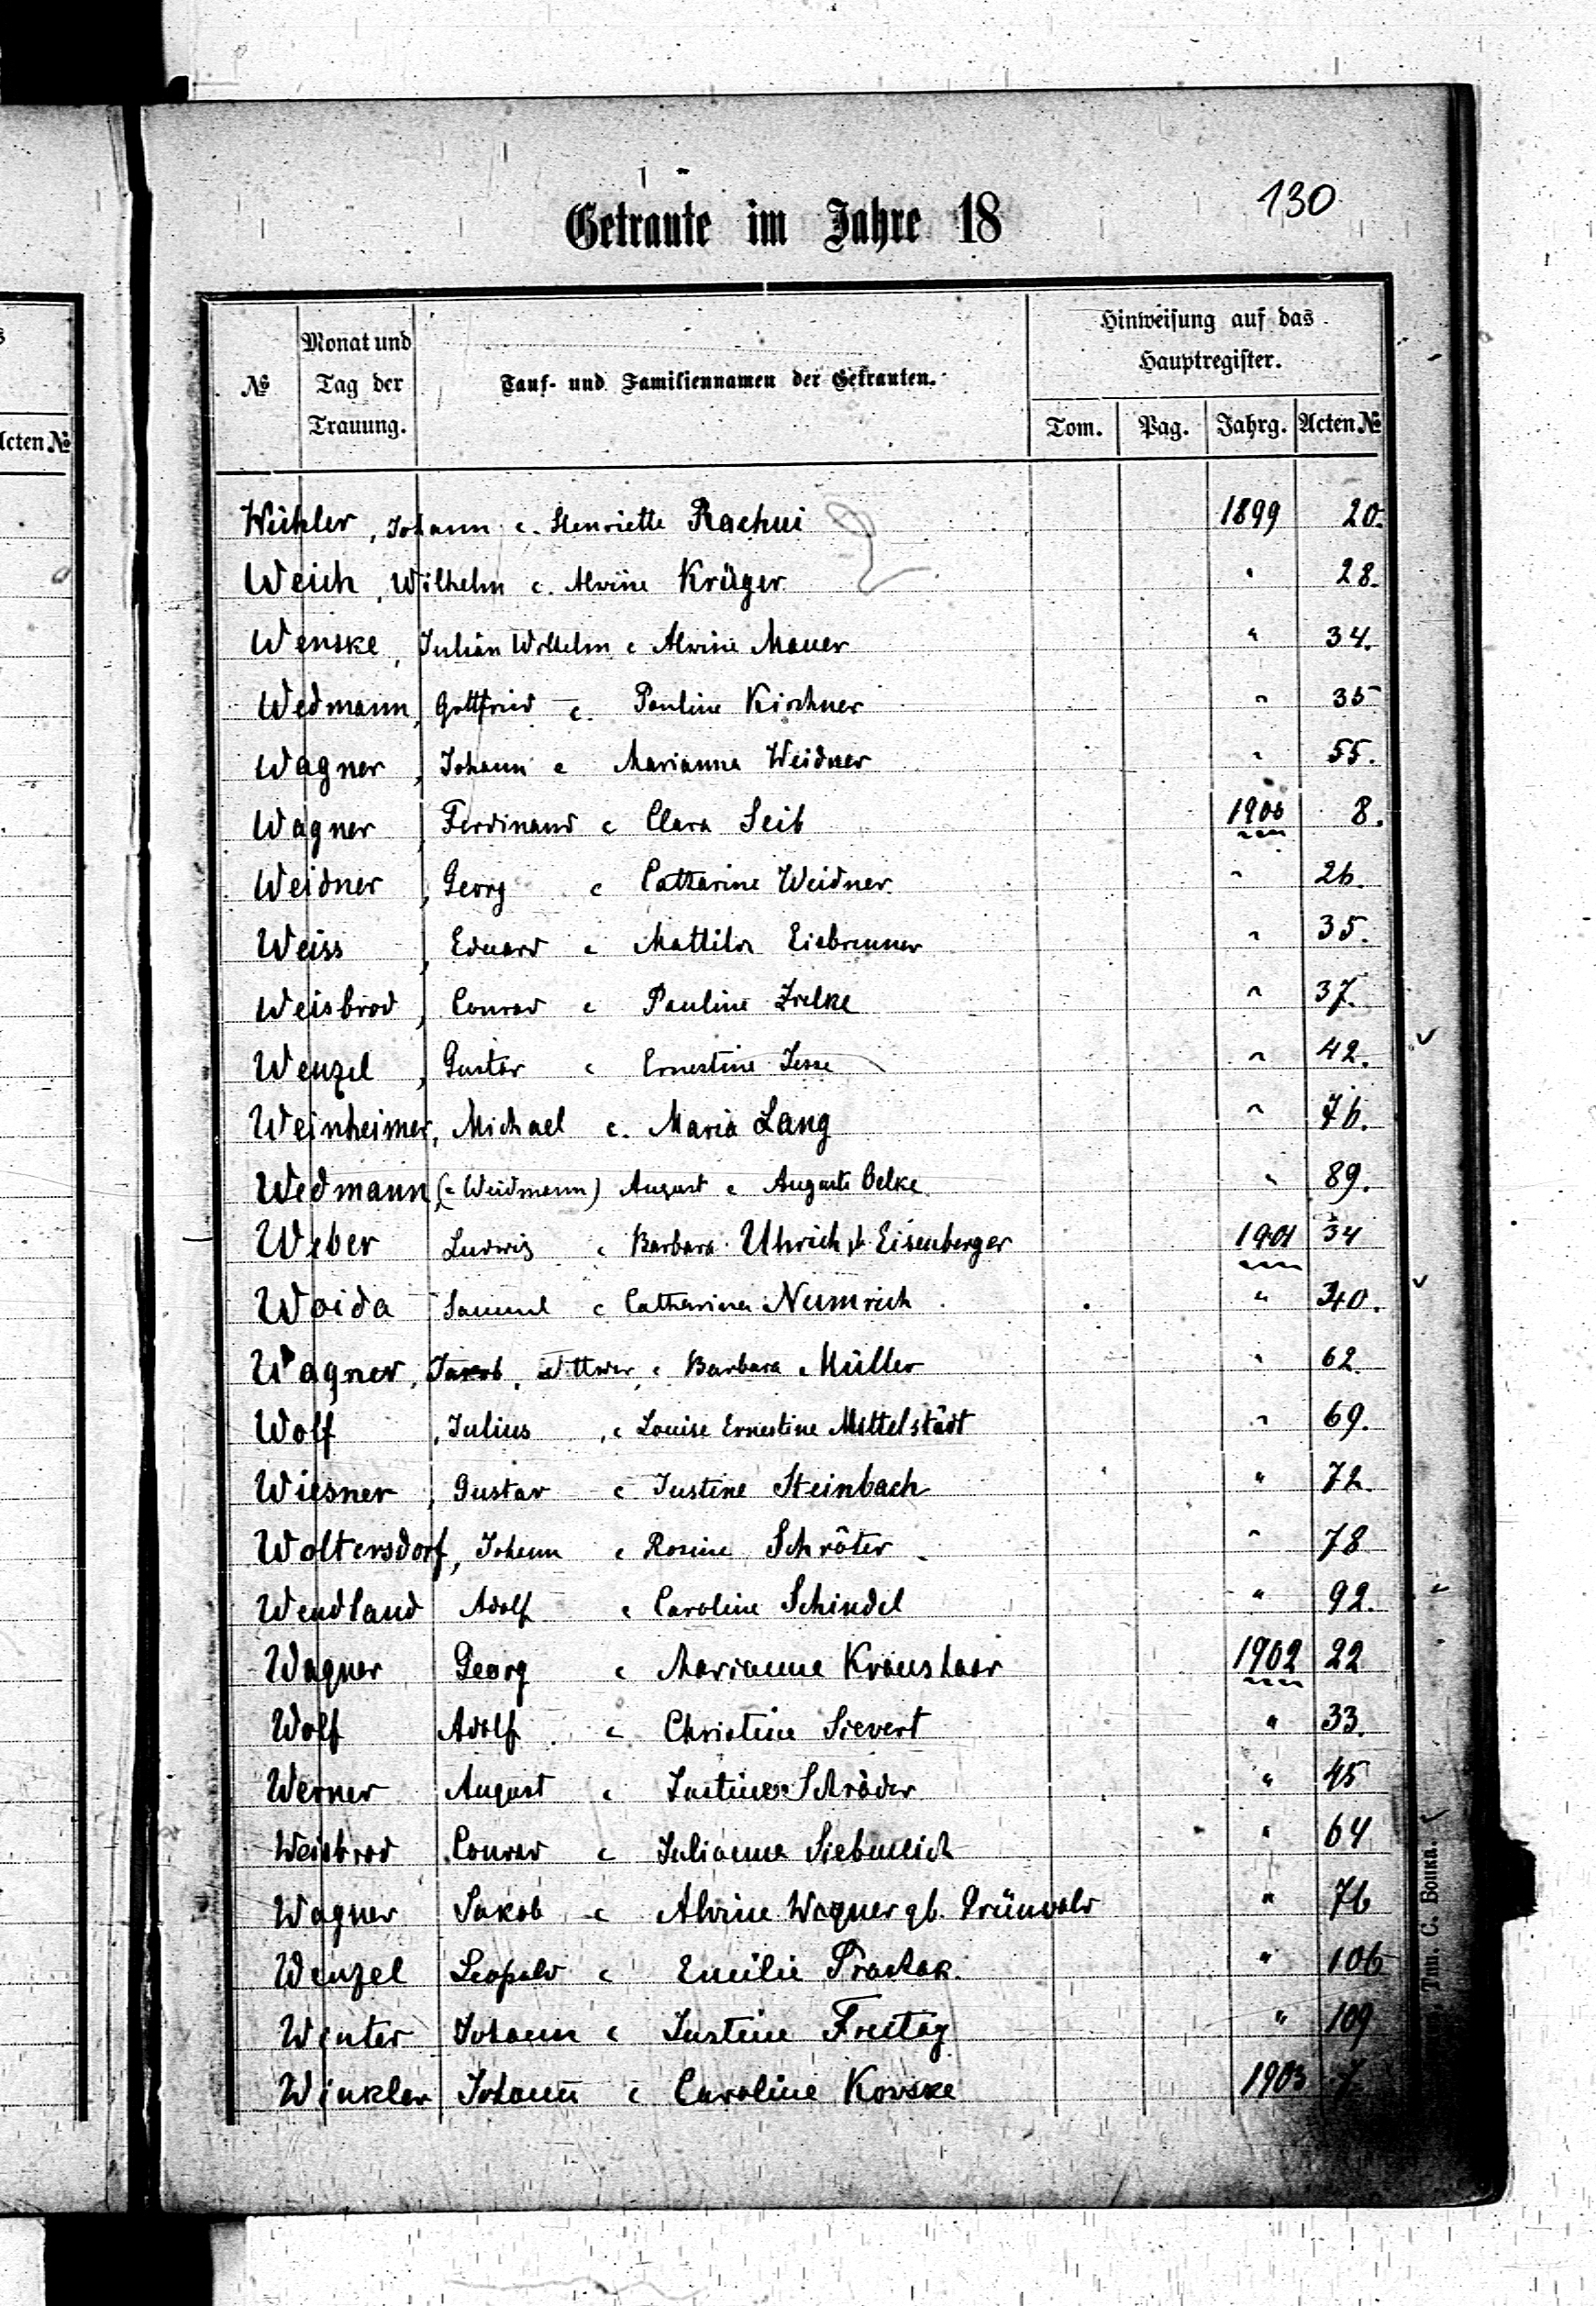 130
Getraute im Jahre 18
№ Monat und Tag der Trauung. Tauf- und Familiennamen der Getrauten. Hinweisung auf das Hauptregister.
Tom. Pag. Jahrg. Acten №
Acten №
Johann c. Henriette 1899 20.
Weich, Wilhelm c. Alwine Krüger " 28.
Wenske, Julian Wilhelm c Alwine Mauer " 34.
Wedmann, Gottfried c. Pauline Kirchner " 35
Wagner, Johann c Marianna Weidner " 55.
Wagner, Ferdinand c Clara Seib 1900 8.
Weidner, Georg c Catharine Weidner " 26.
Weiss, Eduard c Mathilda Eisbrenner " 35.
Weisbrod, Conrad c Pauline " 37.
Wenzel, Gustav c Ernestine Jesse " 42.
Weinheimer, Michael c. Maria Lang " 76.
Wedmann, (c Weidmann) August c Auguste Oelke " 89.
Weber Ludwig c Barbara Uhrich Eisenberger 1901 34
Woida Samuel c Catharina Numrich " 40.
Wagner, Jakob, Wittwer, c Barbara Müller " 62.
Wolf, Julius, c Louise Ernestine Mittelstädt " 69.
Wiesner, Gustav c Justine Steinbach " 72.
Woltersdorf, Johann c Rosine Schröter " 78
Wendland Adolf c Caroline Schindel " 92.
Wagner Georg c Marianne Kraushaar 1902 22
Wolf Adolf c Christine Sievert " 33.
Werner August c Justine Schröder " 45
Weisbrod Conrad c Julianne " 64
Wagner Jakob c Alvine Wagner gb. Grünwald " 76
Wenzel Leopold c Emilie " 106
Winter Johann c Justine Freitag " 109
Winkler Johann c Caroline Kovske 1903 7
Тип. С.